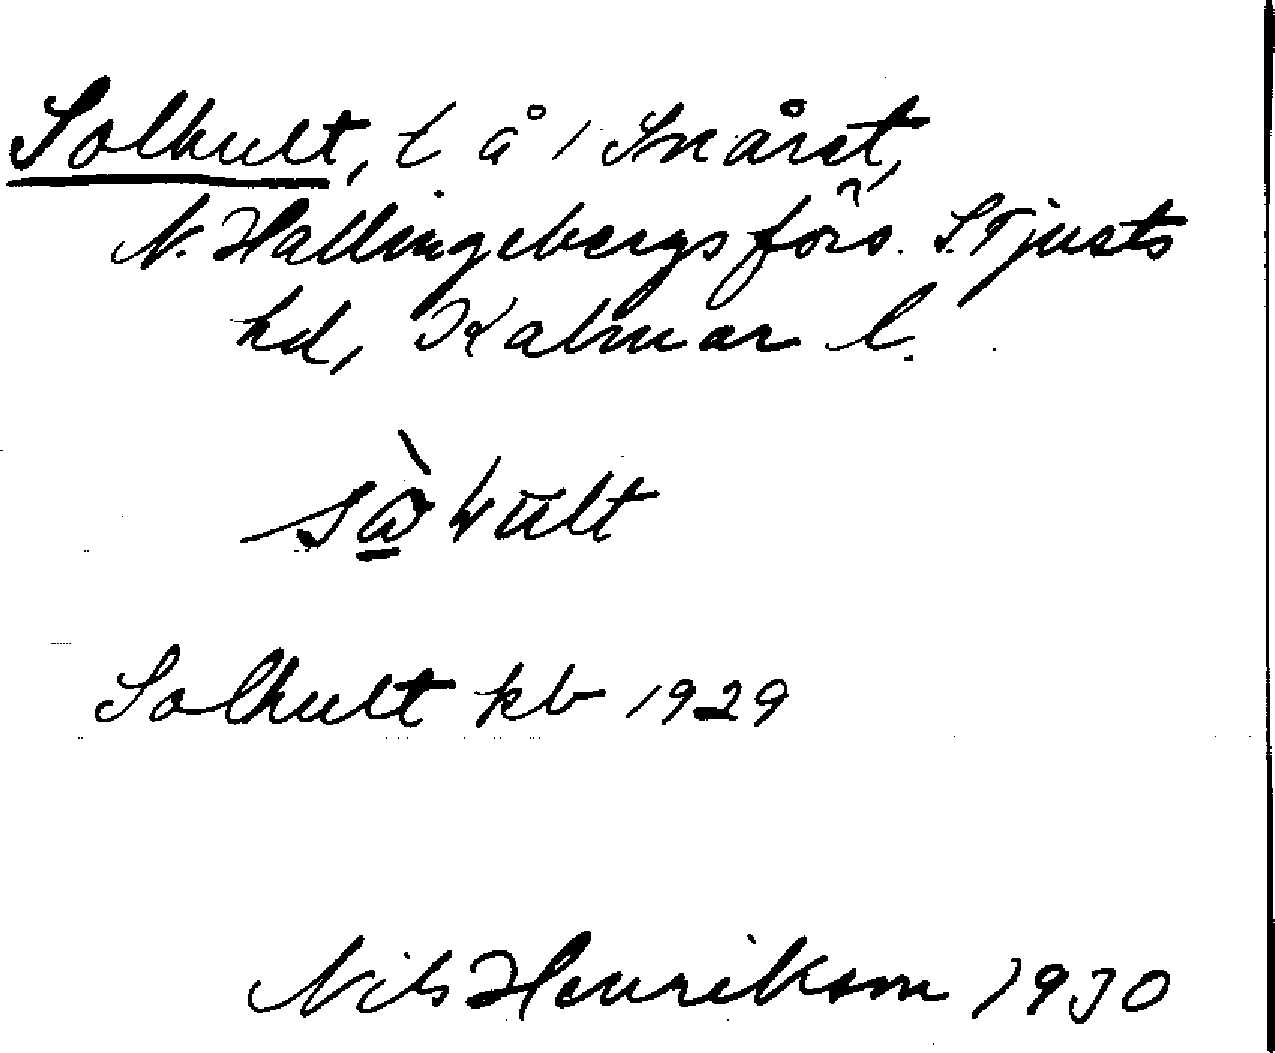 Solhult, t å 1 Snåret,
N. Hallingebergs förs. S. Tjusts
hd, Kalmar l.
Solhult kb 1929
Nils Henrikson 1930